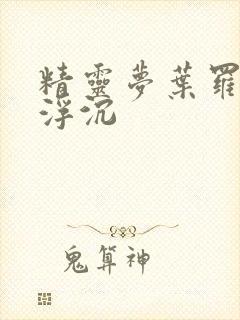 精靈夢葉羅
浮沉
鬼算神